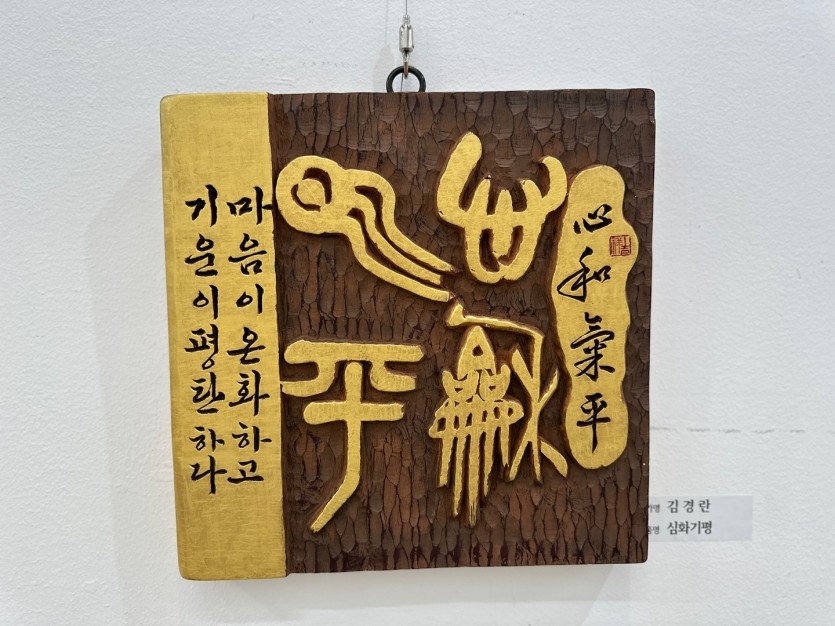 心和氣平
心龢
平
마음이온화하고
기운이평탄하라
김경란
심화기평